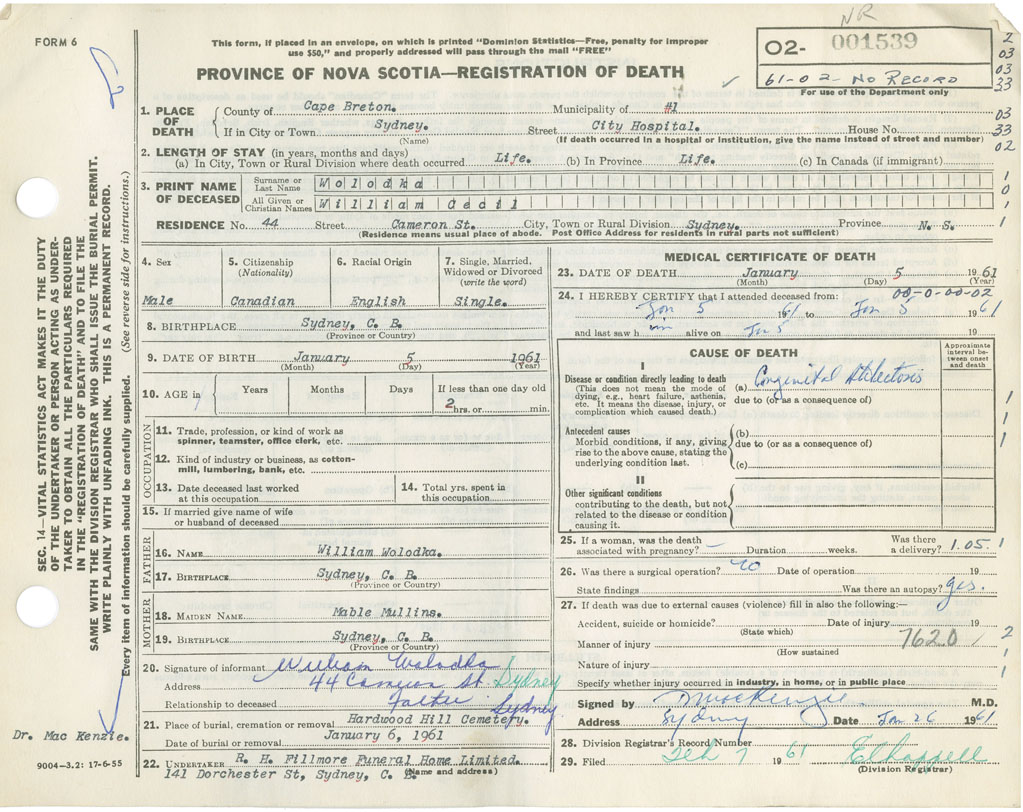 NR
FORM 6
This form, if placed in an envelope, on which is printed "Dominion Statistics—Free, penalty for improper
use $50," and properly addressed will pass through the mail "FREE"
PROVINCE OF NOVA SCOTIA—REGISTRATION OF DEATH
02- 001539
61-02-No RECORD
For use of the Department only
2
03
03
33
03
33
02
1
0
1
1
SEC. 14—VITAL STATISTICS ACT MAKES IT THE DUTY
OF THE UNDERTAKER OR PERSON ACTING AS UNDER-
TAKER TO OBTAIN ALL THE PARTICULARS REQUIRED
IN THE "REGISTRATION OF DEATH" AND TO FILE THE
SAME WITH THE DIVISION REGISTRAR WHO SHALL ISSUE THE BURIAL PERMIT.
WRITE PLAINLY WITH UNFADING INK. THIS IS A PERMANENT RECORD.
Every item of information should be carefully supplied. (See reverse side for instructions.)
1. PLACE OF DEATH
County of Cape Breton. Municipality of #1
If in City or Town Sydney. Street City Hospital. House No.
(Name) (If death occurred in a hospital or institution, give the name instead of street and number)
2. LENGTH OF STAY (in years, months and days)
(a) In City, Town or Rural Division where death occurred Life. (b) In Province Life. (c) In Canada (if immigrant)
3. PRINT NAME OF DECEASED
Surname or Last Name Wolodka
All Given or Christian Names William Cecil
RESIDENCE No. 44 Street Cameron St. City, Town or Rural Division Sydney. Province N. S.
(Residence means usual place of abode. Post Office Address for residents in rural parts not sufficient)
4. Sex
Male
5. Citizenship
(Nationality)
Canadian
6. Racial Origin
English
7. Single, Married,
Widowed or Divorced
(write the word)
Single.
8. BIRTHPLACE Sydney, C. B.
(Province or Country)
9. DATE OF BIRTH January 5 1961
(Month) (Day) (Year)
10. AGE in
Years Months Days If less than one day old
2 hrs. or min.
OCCUPATION
11. Trade, profession, or kind of work as
spinner, teamster, office clerk, etc.
12. Kind of industry or business, as cotton-
mill, lumbering, bank, etc.
13. Date deceased last worked
at this occupation
14. Total yrs. spent in
this occupation
15. If married give name of wife
or husband of deceased
FATHER
16. NAME William Wolodka.
17. BIRTHPLACE Sydney, C. B.
(Province or Country)
MOTHER
18. MAIDEN NAME Mable Mullins.
19. BIRTHPLACE Sydney, C. B.
(Province or Country)
20. Signature of informant William Wolodka
Address 44 Cameron St. Sydney
Relationship to deceased Father Sydney
21. Place of burial, cremation or removal Hardwood Hill Cemetery.
Date of burial or removal January 6, 1961
22. UNDERTAKER R. H. Fillmore Funeral Home Limited.
141 Dorchester St, Sydney, C. B.
(Name and address)
Dr. Mac Kenzie.
9004-3.2: 17-6-55
MEDICAL CERTIFICATE OF DEATH
23. DATE OF DEATH January 5 1961
(Month) (Day) (Year)
24. I HEREBY CERTIFY that I attended deceased from: 00-0-00-02
Jan 5 1961 to Jan 5 1961
and last saw him alive on Jan 5 19
CAUSE OF DEATH
Approximate
interval be-
tween onset
and death
I
Disease or condition directly leading to death
(This does not mean the mode of
dying, e.g., heart failure, asthenia,
etc. It means the disease, injury, or
complication which caused death.)
(a) Congenital Atelectosis
due to (or as a consequence of)
Antecedent causes
Morbid conditions, if any, giving
rise to the above cause, stating the
underlying condition last.
(b)
due to (or as a consequence of)
(c)
II
Other significant conditions
contributing to the death, but not
related to the disease or condition
causing it.
1
1
1
25. If a woman, was the death
associated with pregnancy? Duration weeks. Was there
a delivery? 1.05. 1
26. Was there a surgical operation? no Date of operation 19
State findings Was there an autopsy? yes.
27. If death was due to external causes (violence) fill in also the following:—
Accident, suicide or homicide? Date of injury 19
(State which)
Manner of injury 7620
(How sustained
Nature of injury
Specify whether injury occurred in industry, in home, or in public place
2
1
1
Signed by D MacKenzie M.D.
Address Sydney Date Jan 26 1961
28. Division Registrar's Record Number
29. Filed Feb 7 1961
(Division Registrar)